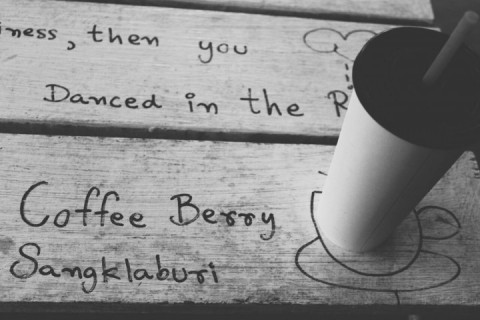 iness, then you
Danced in the R
Coffee Berry
Sangklaburi